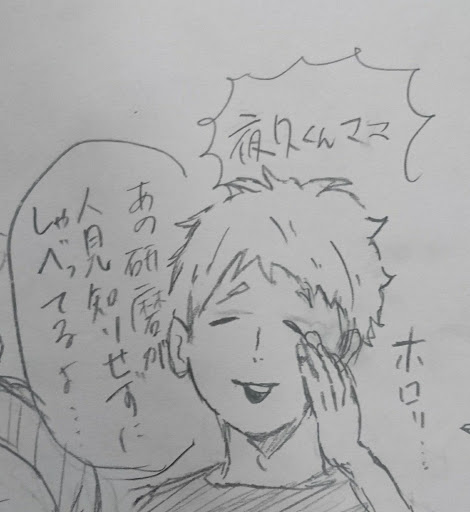 夜久くんママ
あの研磨が
人見知りせずに
しゃべってるよ…
ホロリ…